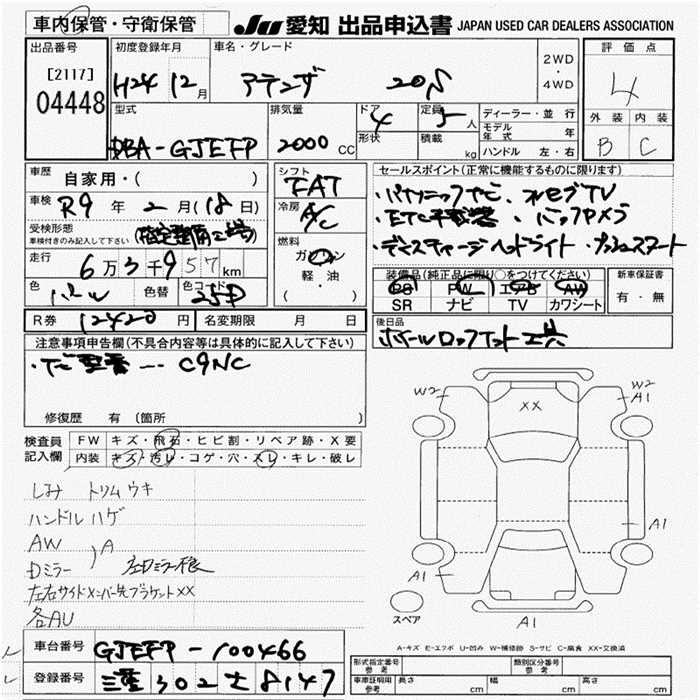 車内保管・守衛保管
JU 愛知 出品申込書 JAPAN USED CAR DEALERS ASSOCIATION
出品番号 初度登録年月 車名・グレード 評価点
[2117]
04448
H24 12月 アテンザ 20S 2WD・4WD 4
型式 排気量 ドア 4 定員 5人 ディーラー・並行 外装 内装
形状 積載 kg モデル年式 年
DBA-GJEFP 2000CC ハンドル 左・右 B C
車歴 自家用・( ) シフト FAT
車検 R9年 2月(18日) 冷房 A/C
受検形態
車検付きのみ記入して下さい (指定整備工場)
走行 6万3千957km 燃料 ガソリン 軽・油 ( )
色 パール 色替 色コード 25D
R券 12420円 名変期限 月 日
セールスポイント(正常に機能するものに限ります)
・パナソニックナビ・フルセグTV
・ETC車載器・バックカメラ
・ディスチャージヘッドライト・プッシュスタート
装備品(純正品に限り○をつけてください) 新車保証書
PS PW エアB AW 有・無
SR ナビ TV カワシート
後日品
ホイールロックナット工具
注意事項申告欄(不具合内容等は具体的に記入して下さい)
・ナビ型番 --- C9NC
修復歴 有 (箇所 )
検査員記入欄 FW キズ・飛石・ヒビ割・リペア跡・X要
内装 キズ・汚レ・コゲ・穴・スレ・キレ・破レ
しみ トリムウキ
ハンドルハゲ
AW ) A
Dミラー 左Dミラー傷
左右サイドメンバー先ブラケットXX
各AU
W2 XX W2
A1
A1
A1
A1
スペア
A-キズ E-エクボ U-凹み W-補修跡 S-サビ C-腐食 XX-交換済
車台番号 GJEFP-100466
登録番号 三重 302 す 8147
形式指定番号 参考 類別区分番号 参考
車庫証明用 参考 長さ cm 幅 cm 高さ cm